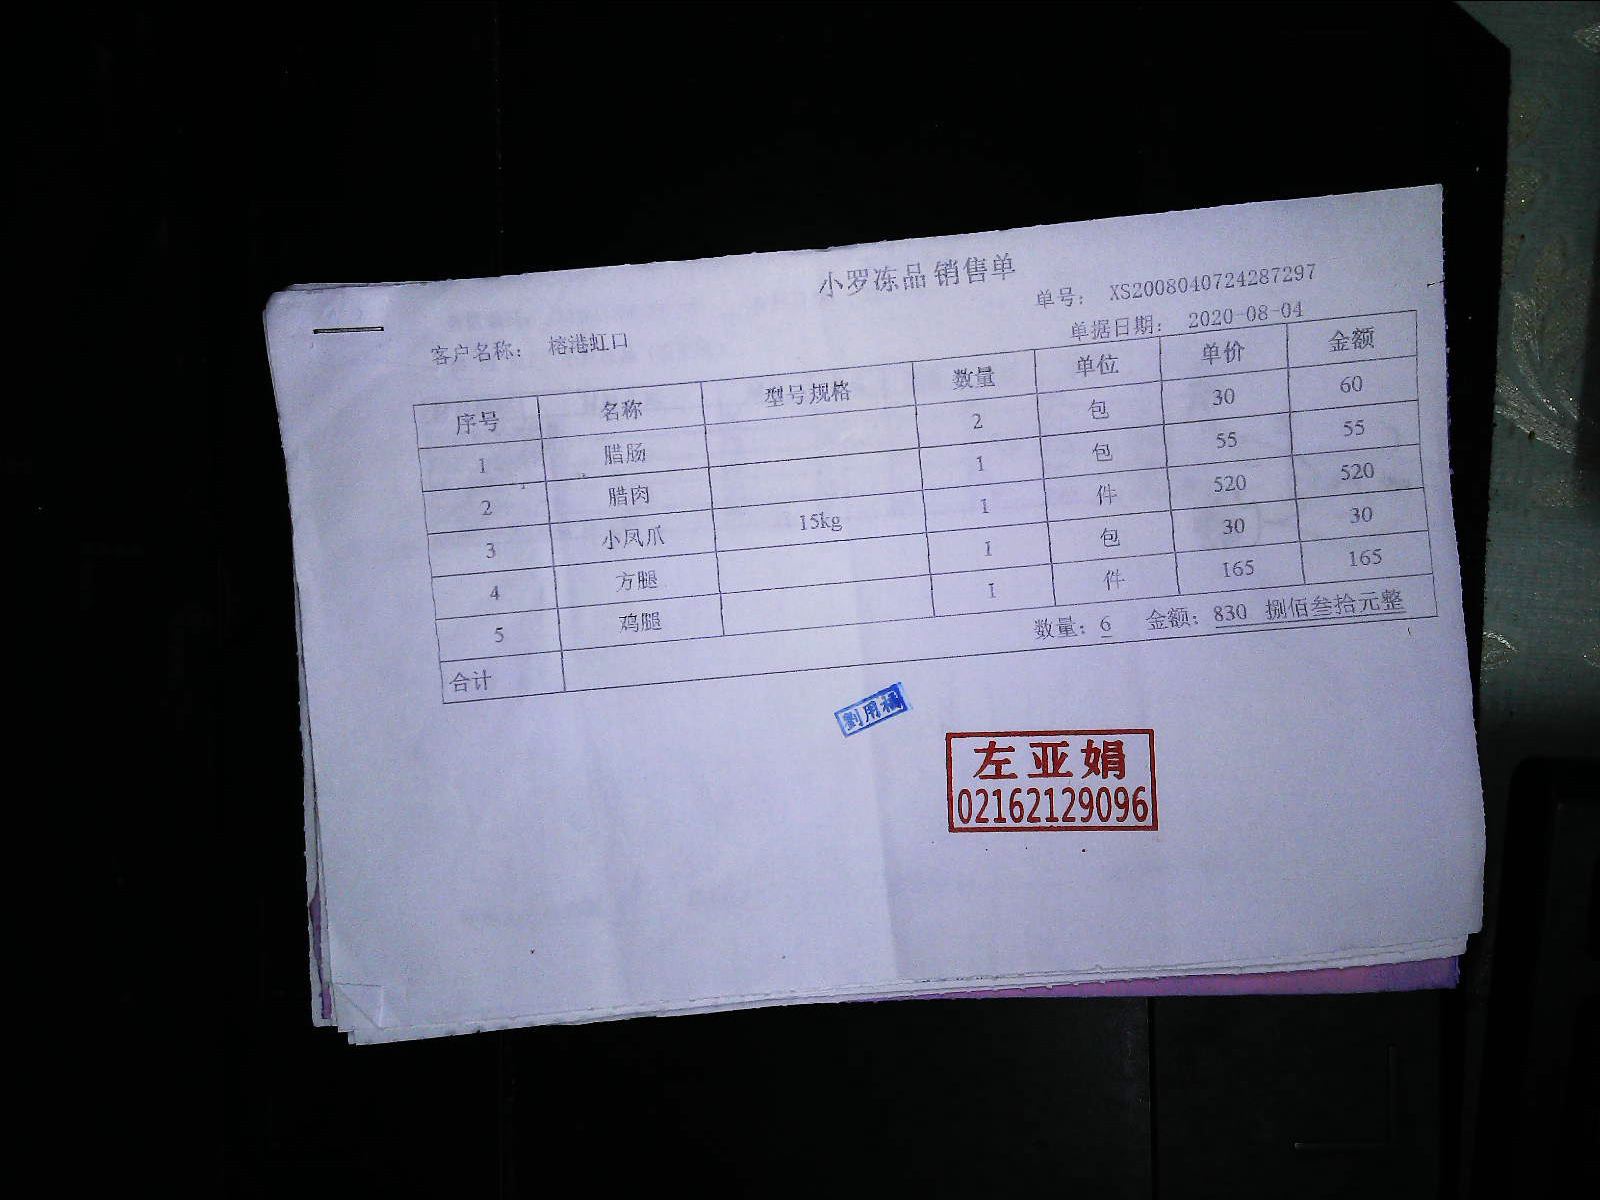 小罗冻品 销售单
单号: XS2008040724287297
客户名称: 榕港虹口 单据日期: 2020-08-04
序号 名称 型号规格 数量 单位 单价 金额
1 腊肠 2 包 30 60
2 腊肉 1 包 55 55
3 小凤爪 15kg 1 件 520 520
4 方腿 1 包 30 30
5 鸡腿 1 件 165 165
合计 数量: 6 金额: 830 捌佰叁拾元整
劉用橘
左亚娟
02162129096